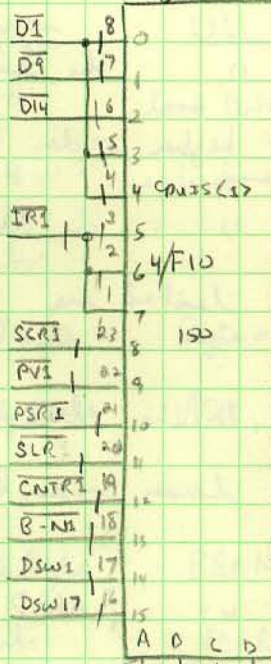 D1 8 0
D9 7 1
D14 6 2
5 3
4 4 CPUIS<1>
IR1 3 5
2 6 4/F10
1 7
150
SCR1 23 8
PV1 22 9
PSR1 21 10
SLR 20 11
CNTR1 19 12
B-N1 18 13
DSW1 17 14
DSW17 16 15
A B C D